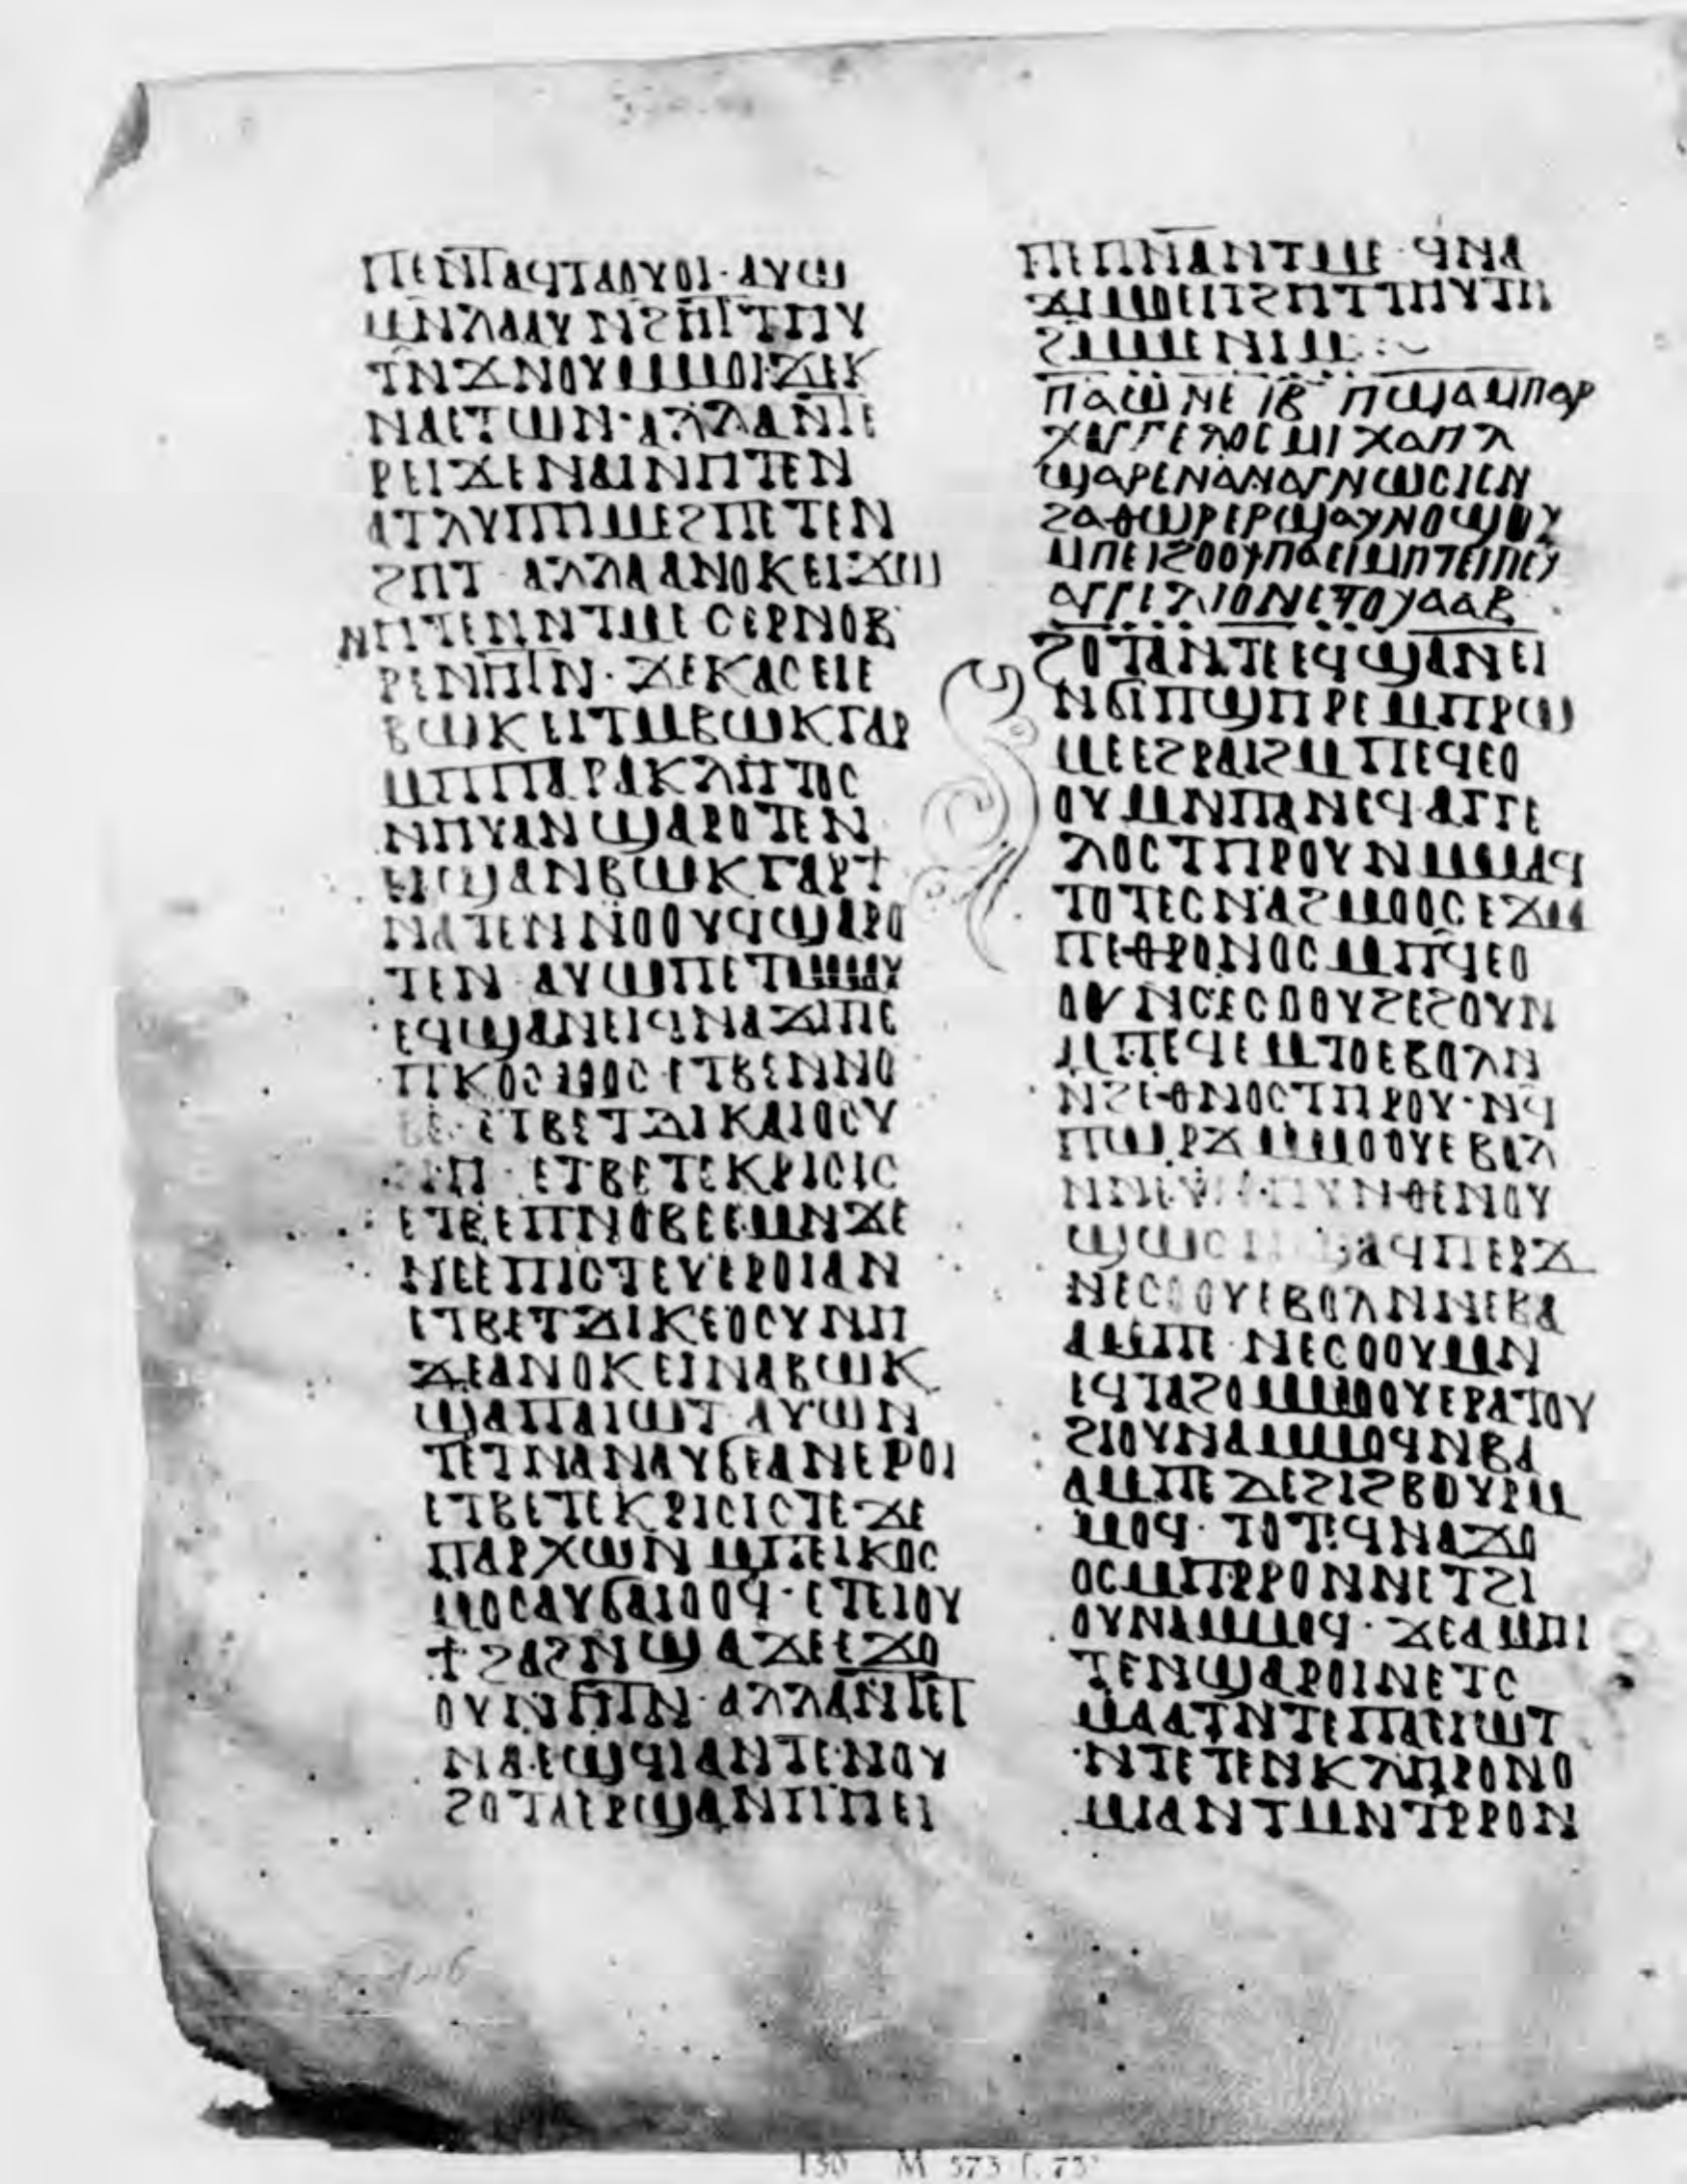 ⲠⲈⲚⲦⲀϤⲦⲀⲞⲨⲞⲒ· ⲀⲨⲰ
ⲘⲚⲖⲀⲀⲨ ⲚϨⲎⲦⲦⲎⲨ
ⲦⲚ ϪⲚⲞⲨ ⲘⲘⲞⲒ ϪⲈⲔ
ⲚⲀⲈⲦⲰⲚ· ⲀⲖⲖⲀ ⲚⲦⲈ
ⲢⲈⲒϪⲈⲚⲀⲒ ⲚⲎⲦⲈⲚ
ⲀⲦⲖⲨⲠⲎ ⲘⲈϨ ⲠⲈⲦⲈⲚ
ϨⲎⲦ· ⲀⲖⲖⲀ ⲀⲚⲞⲔ ⲈⲒϪⲰ
ⲚⲎⲦⲈⲚ ⲚⲦⲘⲈ ⲤⲈⲢⲚⲞⲂ
ⲢⲈ ⲚⲎⲦⲚ· ϪⲈⲔⲀⲤ ⲈⲒⲈ
ⲂⲰⲔ ⲈⲒⲦⲘⲂⲰⲔ ⲄⲀⲢ
ⲘⲠⲠⲀⲢⲀⲔⲖⲎⲦⲞⲤ
ⲚⲎⲨ ⲀⲚ ϢⲀⲢⲞⲦⲈⲚ
ⲈⲒϢⲀⲚⲂⲰⲔ ⲄⲀⲢ ϯ
ⲚⲀⲦⲈⲚⲚⲞⲞⲨϤ ϢⲀⲢⲞ
ⲦⲈⲚ· ⲀⲨⲰ ⲠⲈⲦⲘⲘⲀⲨ
ⲈϤϢⲀⲚⲈⲒ ϤⲚⲀϪⲠⲒⲈ
ⲠⲔⲞⲤⲘⲞⲤ ⲈⲦⲂⲈ ⲚⲚⲞ
ⲂⲈ· ⲈⲦⲂⲈ ⲦⲆⲒⲔⲀⲒⲞⲤⲨ
ⲚⲎ· ⲈⲦⲂⲈ ⲦⲈⲔⲢⲒⲤⲒⲤ
ⲈⲦⲂⲈ ⲠⲚⲞⲂⲈ ⲈⲘⲈⲚ ϪⲈ
ⲚⲤⲈⲠⲒⲤⲦⲈⲨⲈ ⲢⲞⲒ ⲀⲚ
ⲈⲦⲂⲈ ⲦⲆⲒⲔⲈⲞⲤⲨⲚⲎ
ϪⲈ ⲀⲚⲞⲔ ⲈⲒⲚⲀⲂⲰⲔ
ϢⲀ ⲠⲀⲒⲰⲦ ⲀⲨⲰ Ⲛ
ⲦⲈⲦⲚⲀⲚⲀⲨ ϬⲈ ⲀⲚ ⲈⲢⲞⲒ
ⲈⲦⲂⲈ ⲦⲈⲔⲢⲒⲤⲒⲤ ⲦⲈ ϪⲈ
ⲠⲀⲢⲬⲰⲚ ⲘⲠⲈⲒⲔⲞⲤ
ⲘⲞⲤ ⲀⲨϬⲀⲒⲞⲞϤ· ⲈⲦⲈⲒ ⲞⲨ
ϯ ϨⲀϨ ⲚϢⲀϪⲈ ⲈϪⲞ
ⲞⲨ ⲚⲎⲦⲚ· ⲀⲖⲖⲀ ⲚⲦⲈⲦ
ⲚⲀⲈϢ ϤⲒ ⲀⲚ ⲦⲈⲚⲞⲨ
ϨⲞⲦⲀⲈ ⲢϢⲀⲚⲠⲎ ⲈⲒ
ⲠⲈⲠⲚⲀ ⲚⲦⲘⲈ· ϤⲚⲀ
ϪⲒⲘⲞⲈⲒⲦ ϨⲎⲦⲦⲎⲨⲦⲚ
ϨⲘ ⲘⲈ ⲚⲒⲘ :~
ⲠⲀⲰⲚⲈ ⲒⲂ ⲠϢⲀ ⲘⲠⲀⲢ
ⲬⲀⲄⲄⲈⲖⲞⲤ ⲘⲒⲬⲀⲎⲖ
ϢⲀⲢⲈⲚⲀⲚⲀⲄⲚⲰⲤⲒⲤ Ⲛ
ϨⲀⲐⲰⲢ ⲈⲢϢⲀⲨ ⲚⲞϢⲞⲨ
ⲘⲠⲈⲒϨⲞⲞⲨ ⲠⲀⲈⲒ ⲘⲚ ⲠⲈⲒⲠⲈⲨ
ⲀⲄⲄⲈⲖⲒⲞⲚ ⲈⲦⲞⲨⲀⲀⲂ
ϨⲞⲦⲀⲚ ⲦⲈ ⲈϤϢⲀⲚⲈⲒ
ⲚϬⲒ ⲠϢⲎⲢⲈ ⲘⲠⲢⲰ
ⲘⲈ ⲈϨⲢⲀⲒ ϨⲘ ⲠⲈϤⲈⲞ
ⲞⲨ ⲘⲚ ⲠⲀ ⲚⲈϤⲀⲄⲄⲈ
ⲖⲞⲤ ⲦⲎⲢⲞⲨ ⲚⲘⲘⲀϤ
ⲦⲞⲦⲈ ⲤⲚⲀϨⲘⲞⲞⲤ ⲈϪⲘ
ⲠⲈⲐⲢⲞⲚⲞⲤ ⲘⲠϤⲈⲞ
ⲞⲨ ⲚⲤⲈⲤⲞⲞⲨϨ ⲈϨⲞⲨⲚ
ⲘⲠⲈϤⲈⲘⲦⲞ ⲈⲂⲞⲖ Ⲛ
ⲚϨⲈⲐⲚⲞⲤ ⲦⲎⲢⲞⲨ· ⲚϤ
ⲠⲰⲢϪ ⲘⲘⲞⲞⲨ ⲈⲂⲞⲖ
ⲚⲐⲈ ⲚⲞⲨ
ϢⲰⲤ ϢⲀϤⲠⲈⲢϪ
ⲚⲈⲤⲞⲞⲨ ⲈⲂⲞⲖ ⲚⲚⲈⲂⲀ
ⲀⲘⲠⲈ· ⲚⲈⲤⲞⲞⲨ ⲘⲈⲚ
ⲈϤⲦⲀϨⲞ ⲘⲘⲞⲞⲨ ⲈⲢⲀⲦⲞⲨ
ϨⲒ ⲞⲨⲚⲀⲘ ⲘⲘⲞϤ ⲚⲂⲀ
ⲀⲘⲠⲈ ⲆⲈ ϨⲒ ϨⲂⲞⲨⲢ Ⲙ
ⲘⲞϤ· ⲦⲞⲦⲈ ϤⲚⲀϪⲞ
ⲞⲤ ⲘⲠⲢⲢⲞ ⲚⲚⲈⲦϨⲒ
ⲞⲨⲚⲀⲘ ⲘⲘⲞϤ· ϪⲈ ⲀⲘⲎⲒ
ⲦⲈⲚ ϢⲀⲢⲞⲒ ⲚⲈⲦⲤ
ⲘⲀⲀⲦ ⲚⲦⲈ ⲠⲀⲈⲒⲰⲦ
ⲚⲦⲈⲦⲈⲚⲔⲖⲎⲢⲞⲚⲞ
ⲘⲒⲀ ⲚⲦⲘⲚⲦⲢⲢⲞ Ⲛ
130 M 573 f. 75